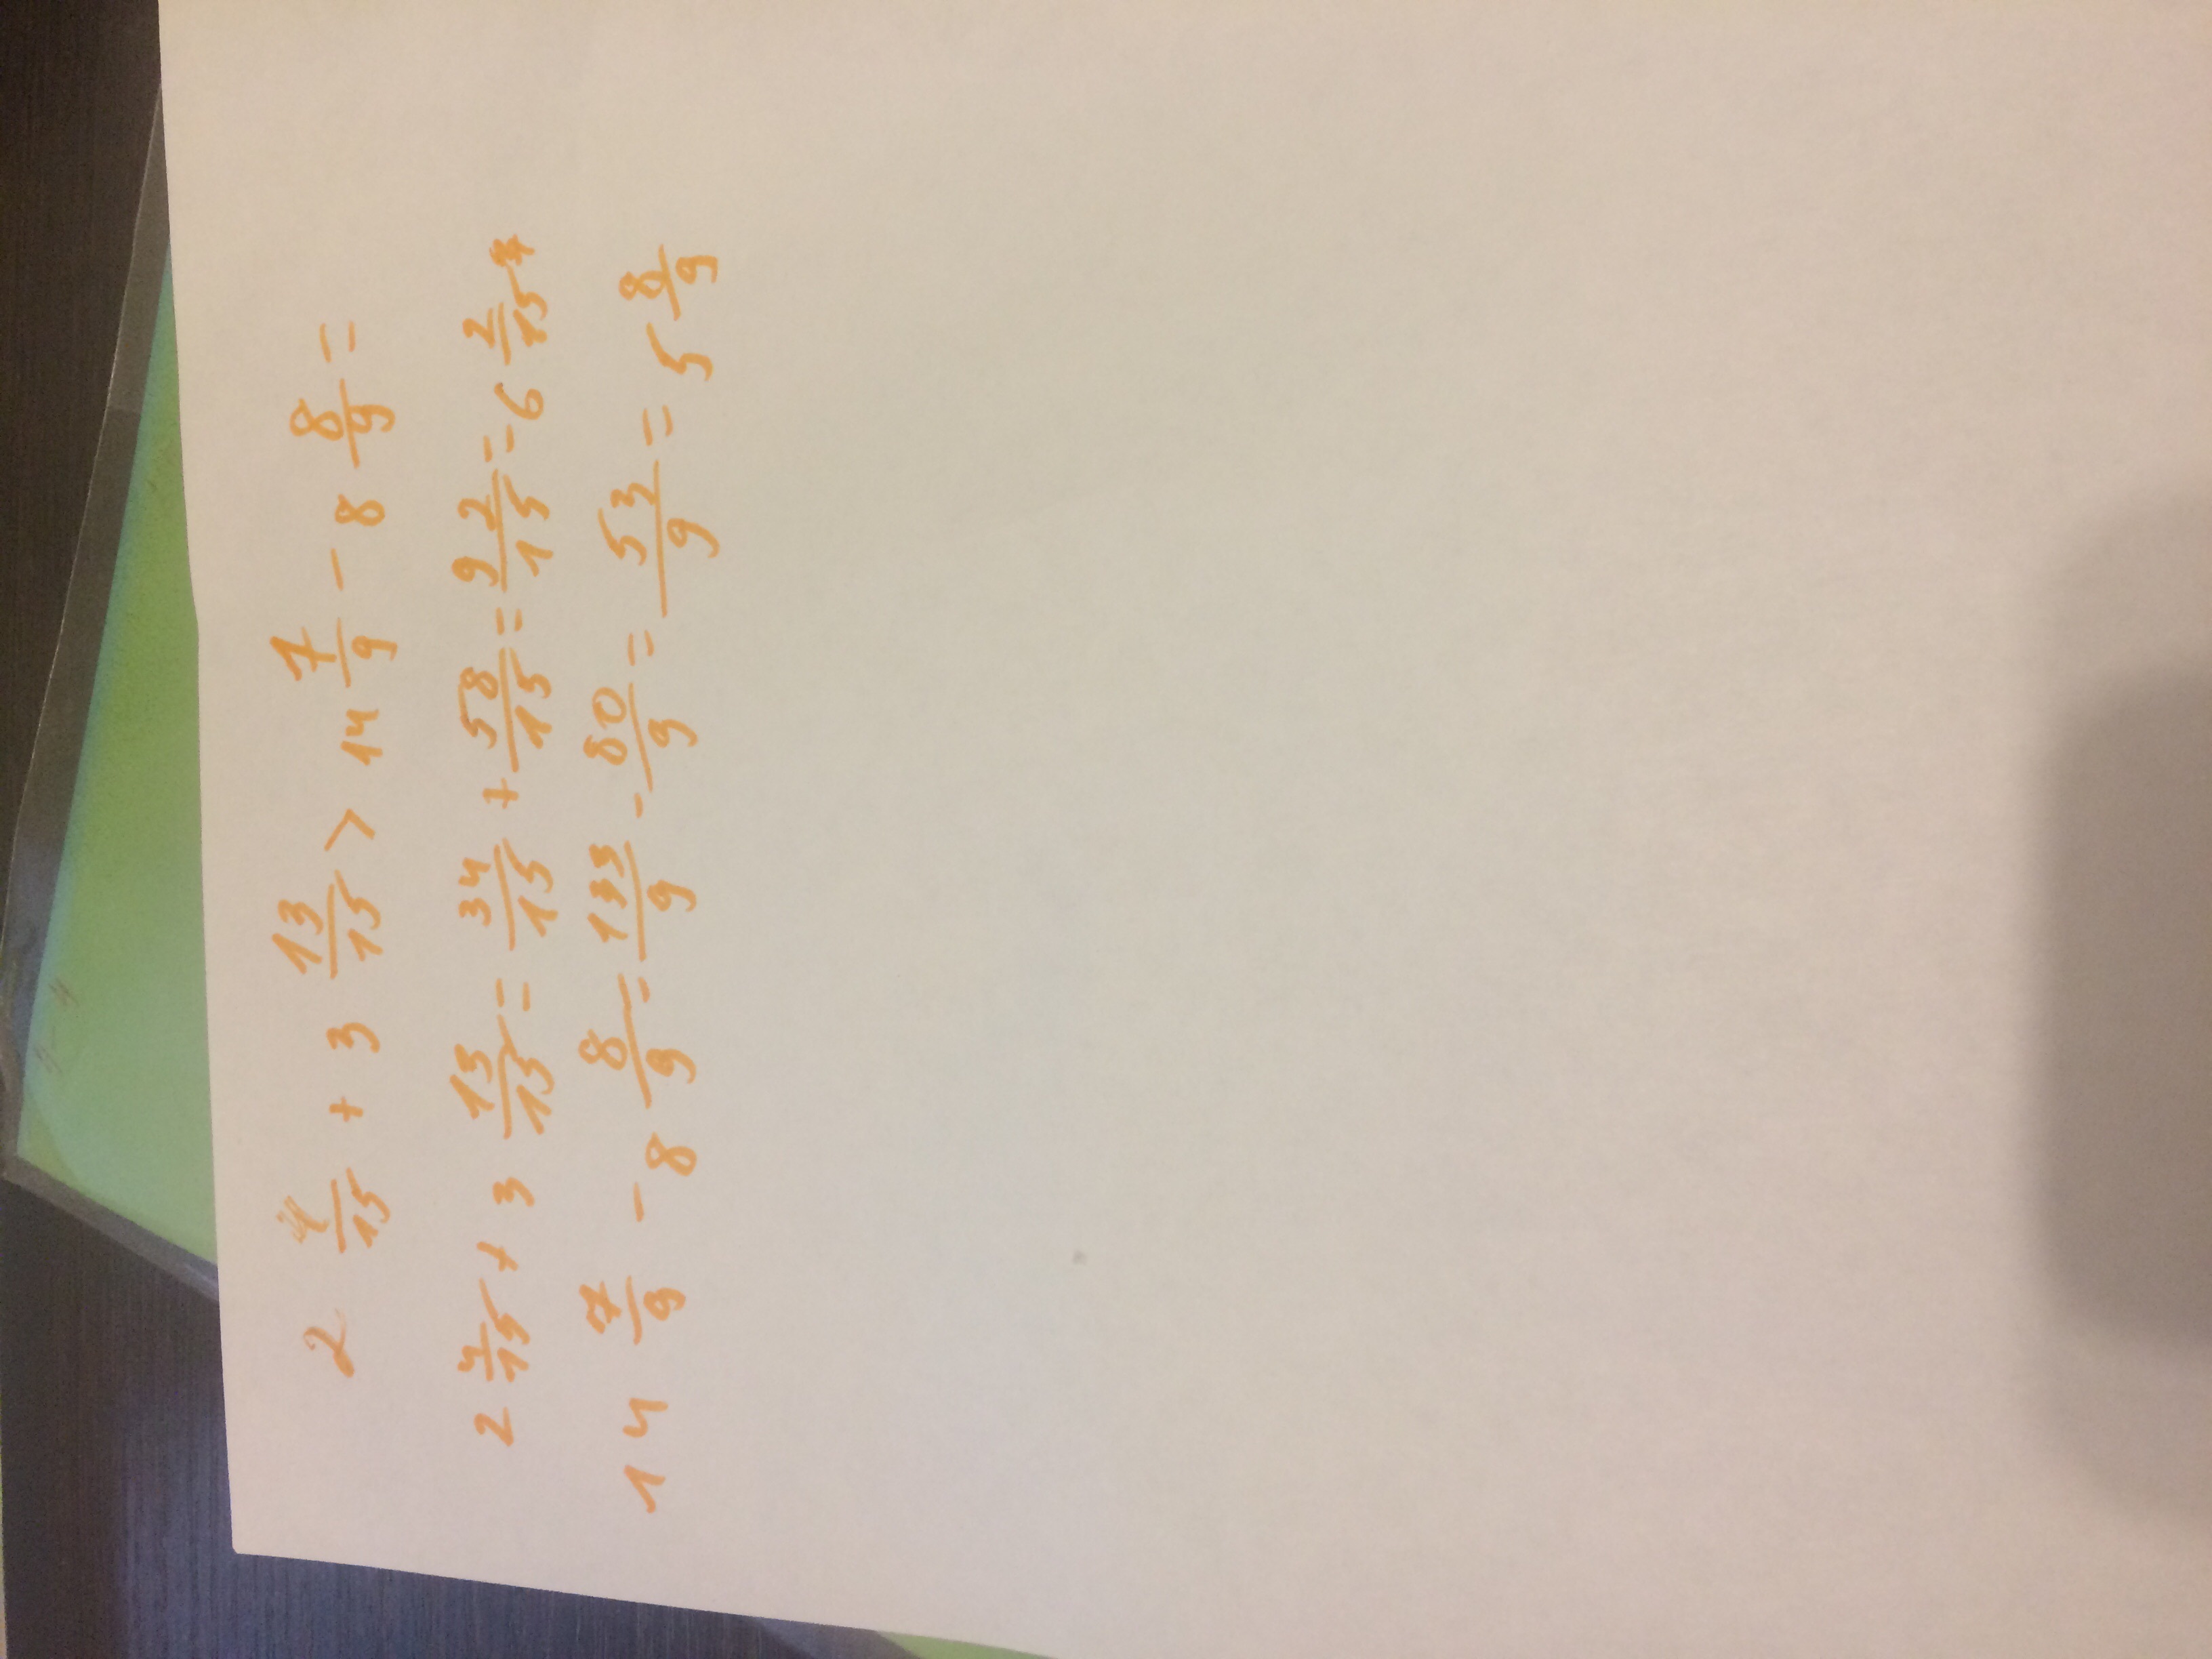 2 4/15 + 3 13/15 > 14 7/9 - 8 8/9 =
2 4/15 + 3 13/15 = 34/15 + 58/15 = 92/15 = 6 2/15
14 7/9 - 8 8/9 = 133/9 - 80/9 = 53/9 = 5 8/9